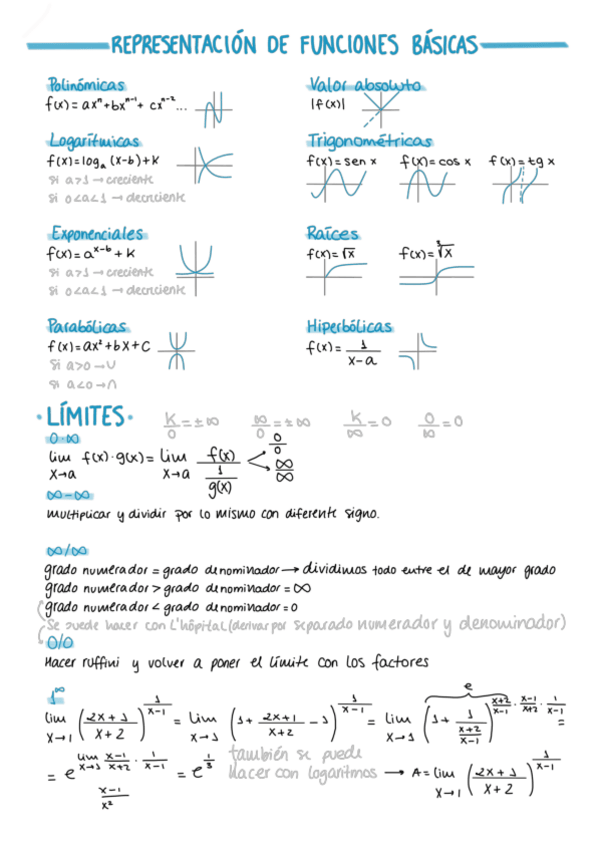 REPRESENTACIÓN DE FUNCIONES BÁSICAS
Polinómicas
f(x) = axⁿ + bxⁿ⁻¹ + cxⁿ⁻² ...
Valor absoluto
|f(x)|
Logarítmicas
f(x) = logₐ (x-b) + K
Si a>1 → creciente
Si 0<a<1 → decreciente
Trigonométricas
f(x) = sen x f(x) = cos x f(x) = tg x
Exponenciales
f(x) = aˣ⁻ᵇ + K
Si a>1 → creciente
Si 0<a<1 → decreciente
Raíces
f(x) = √x f(x) = ∛x
Parabólicas
f(x) = ax² + bx + c
Si a>0 → ∪
Si a<0 → ∩
Hiperbólicas
f(x) = 1/(x-a)
· LÍMITES · K/0 = ±∞ ∞/0 = ±∞ K/∞ = 0 0/∞ = 0
0·∞
lim x→a f(x)·g(x) = lim x→a f(x)/(1/g(x)) < 0/0 ∞/∞
∞-∞
multiplicar y dividir por lo mismo con diferente signo.
∞/∞
grado numerador = grado denominador → dividimos todo entre el de mayor grado
grado numerador > grado denominador = ∞
grado numerador < grado denominador = 0
(se puede hacer con L'hôpital (derivar por separado numerador y denominador)
0/0
Hacer ruffini y volver a poner el límite con los factores
1^∞
lim x→1 ((2x+1)/(x+2))^(1/(x-1)) = lim x→1 (1 + (2x+1)/(x+2) - 1)^(1/(x-1)) = lim x→1 (1 + 1/((x+2)/(x-1)))^((x+2)/(x-1) · (x-1)/(x+2) · 1/(x-1)) = e
= e^(lim x→1 (x-1)/(x+2) · 1/(x-1)) = e^(1/3) también se puede hacer con logaritmos → A = lim x→1 ((2x+1)/(x+2))^(1/(x-1))
(x-1)/x²